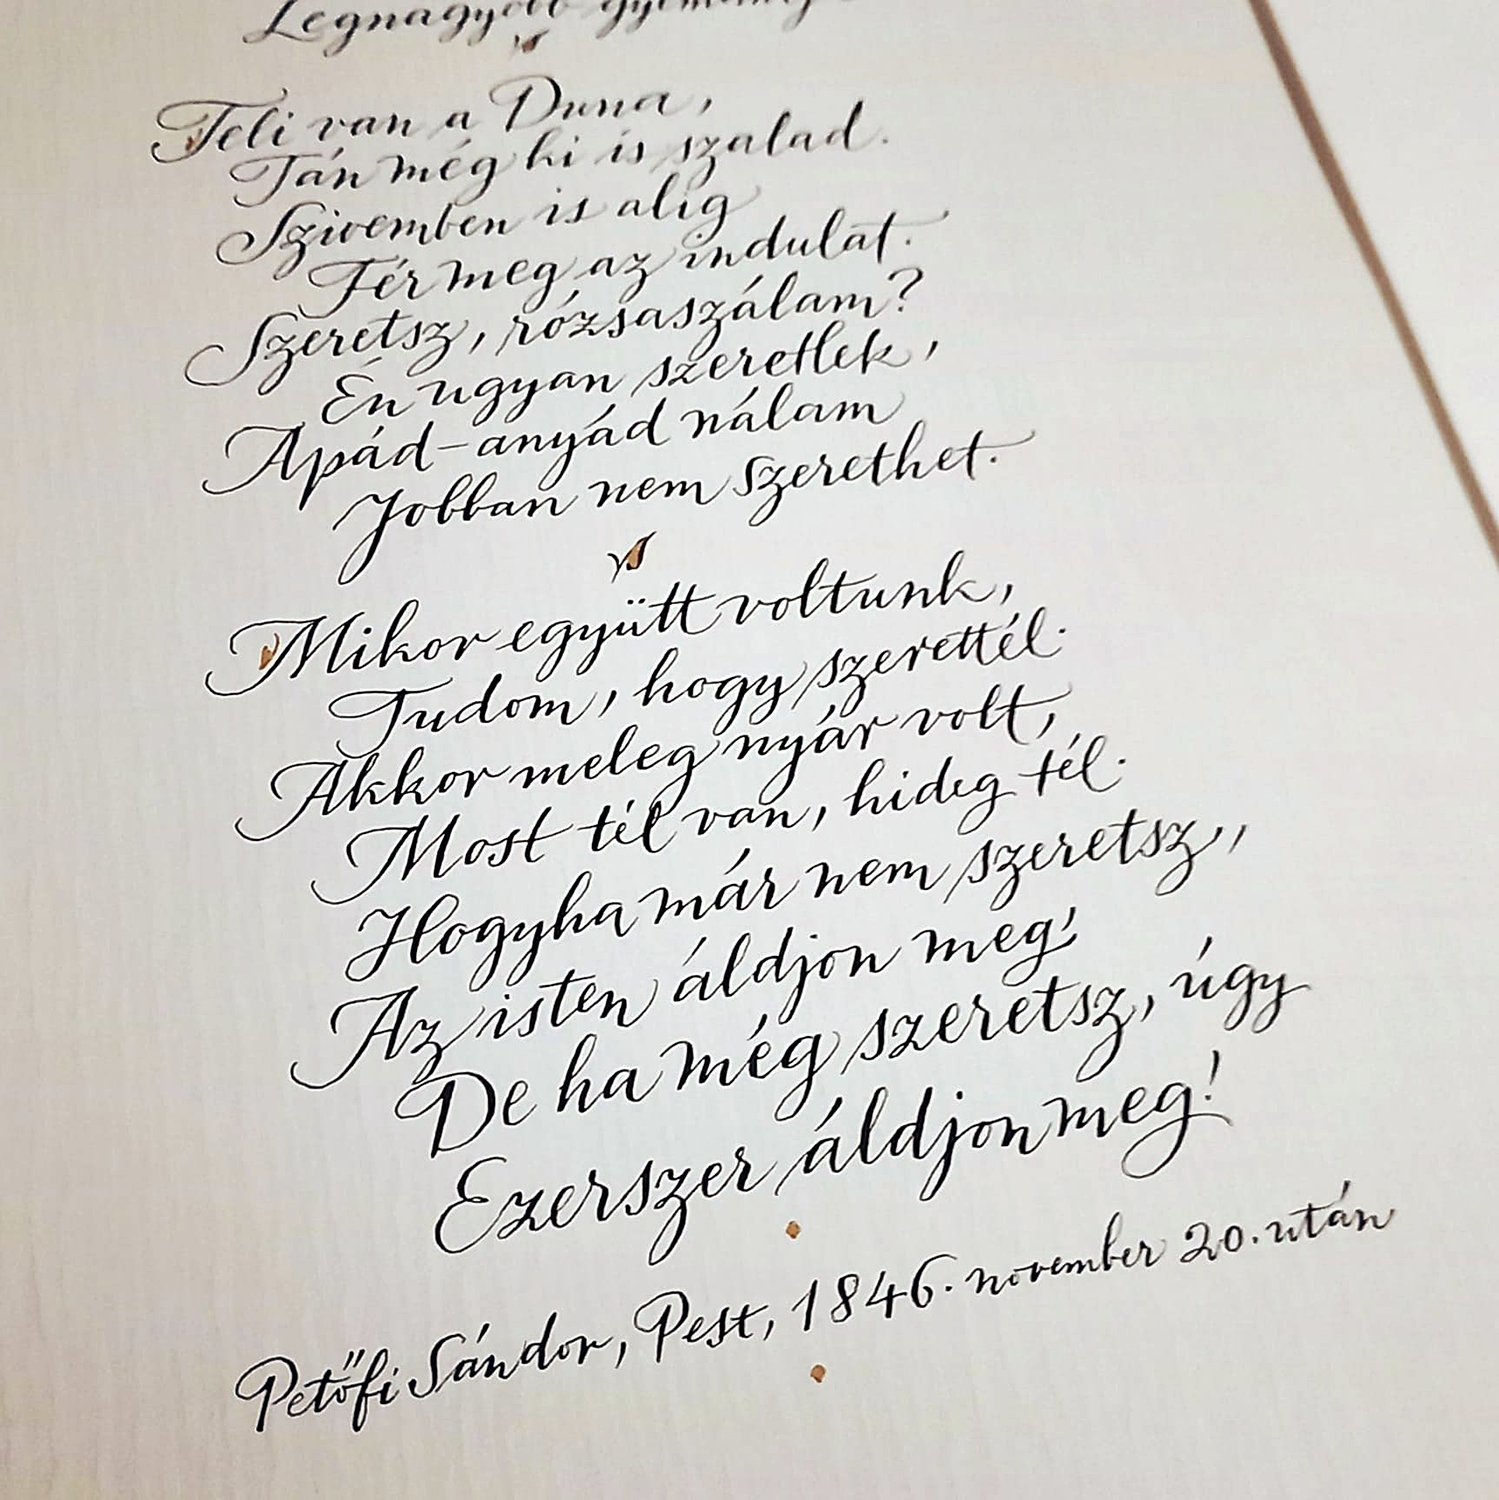 Legnagyobb gyémántja
Teli van a Duna,
Tán még ki is szalad.
Szivemben is alig
Fér meg az indulat.
Szeretsz, rózsaszálam?
Én ugyan szeretlek,
Apád-anyád nálam
Jobban nem szerethet.
Mikor együtt voltunk,
Tudom, hogy szerettél.
Akkor meleg nyár volt,
Most tél van, hideg tél.
Hogyha már nem szeretsz,,
Az isten áldjon meg,
De ha még szeretsz, úgy
Ezerszer áldjon meg!
Petőfi Sándor, Pest, 1846. november 20. után